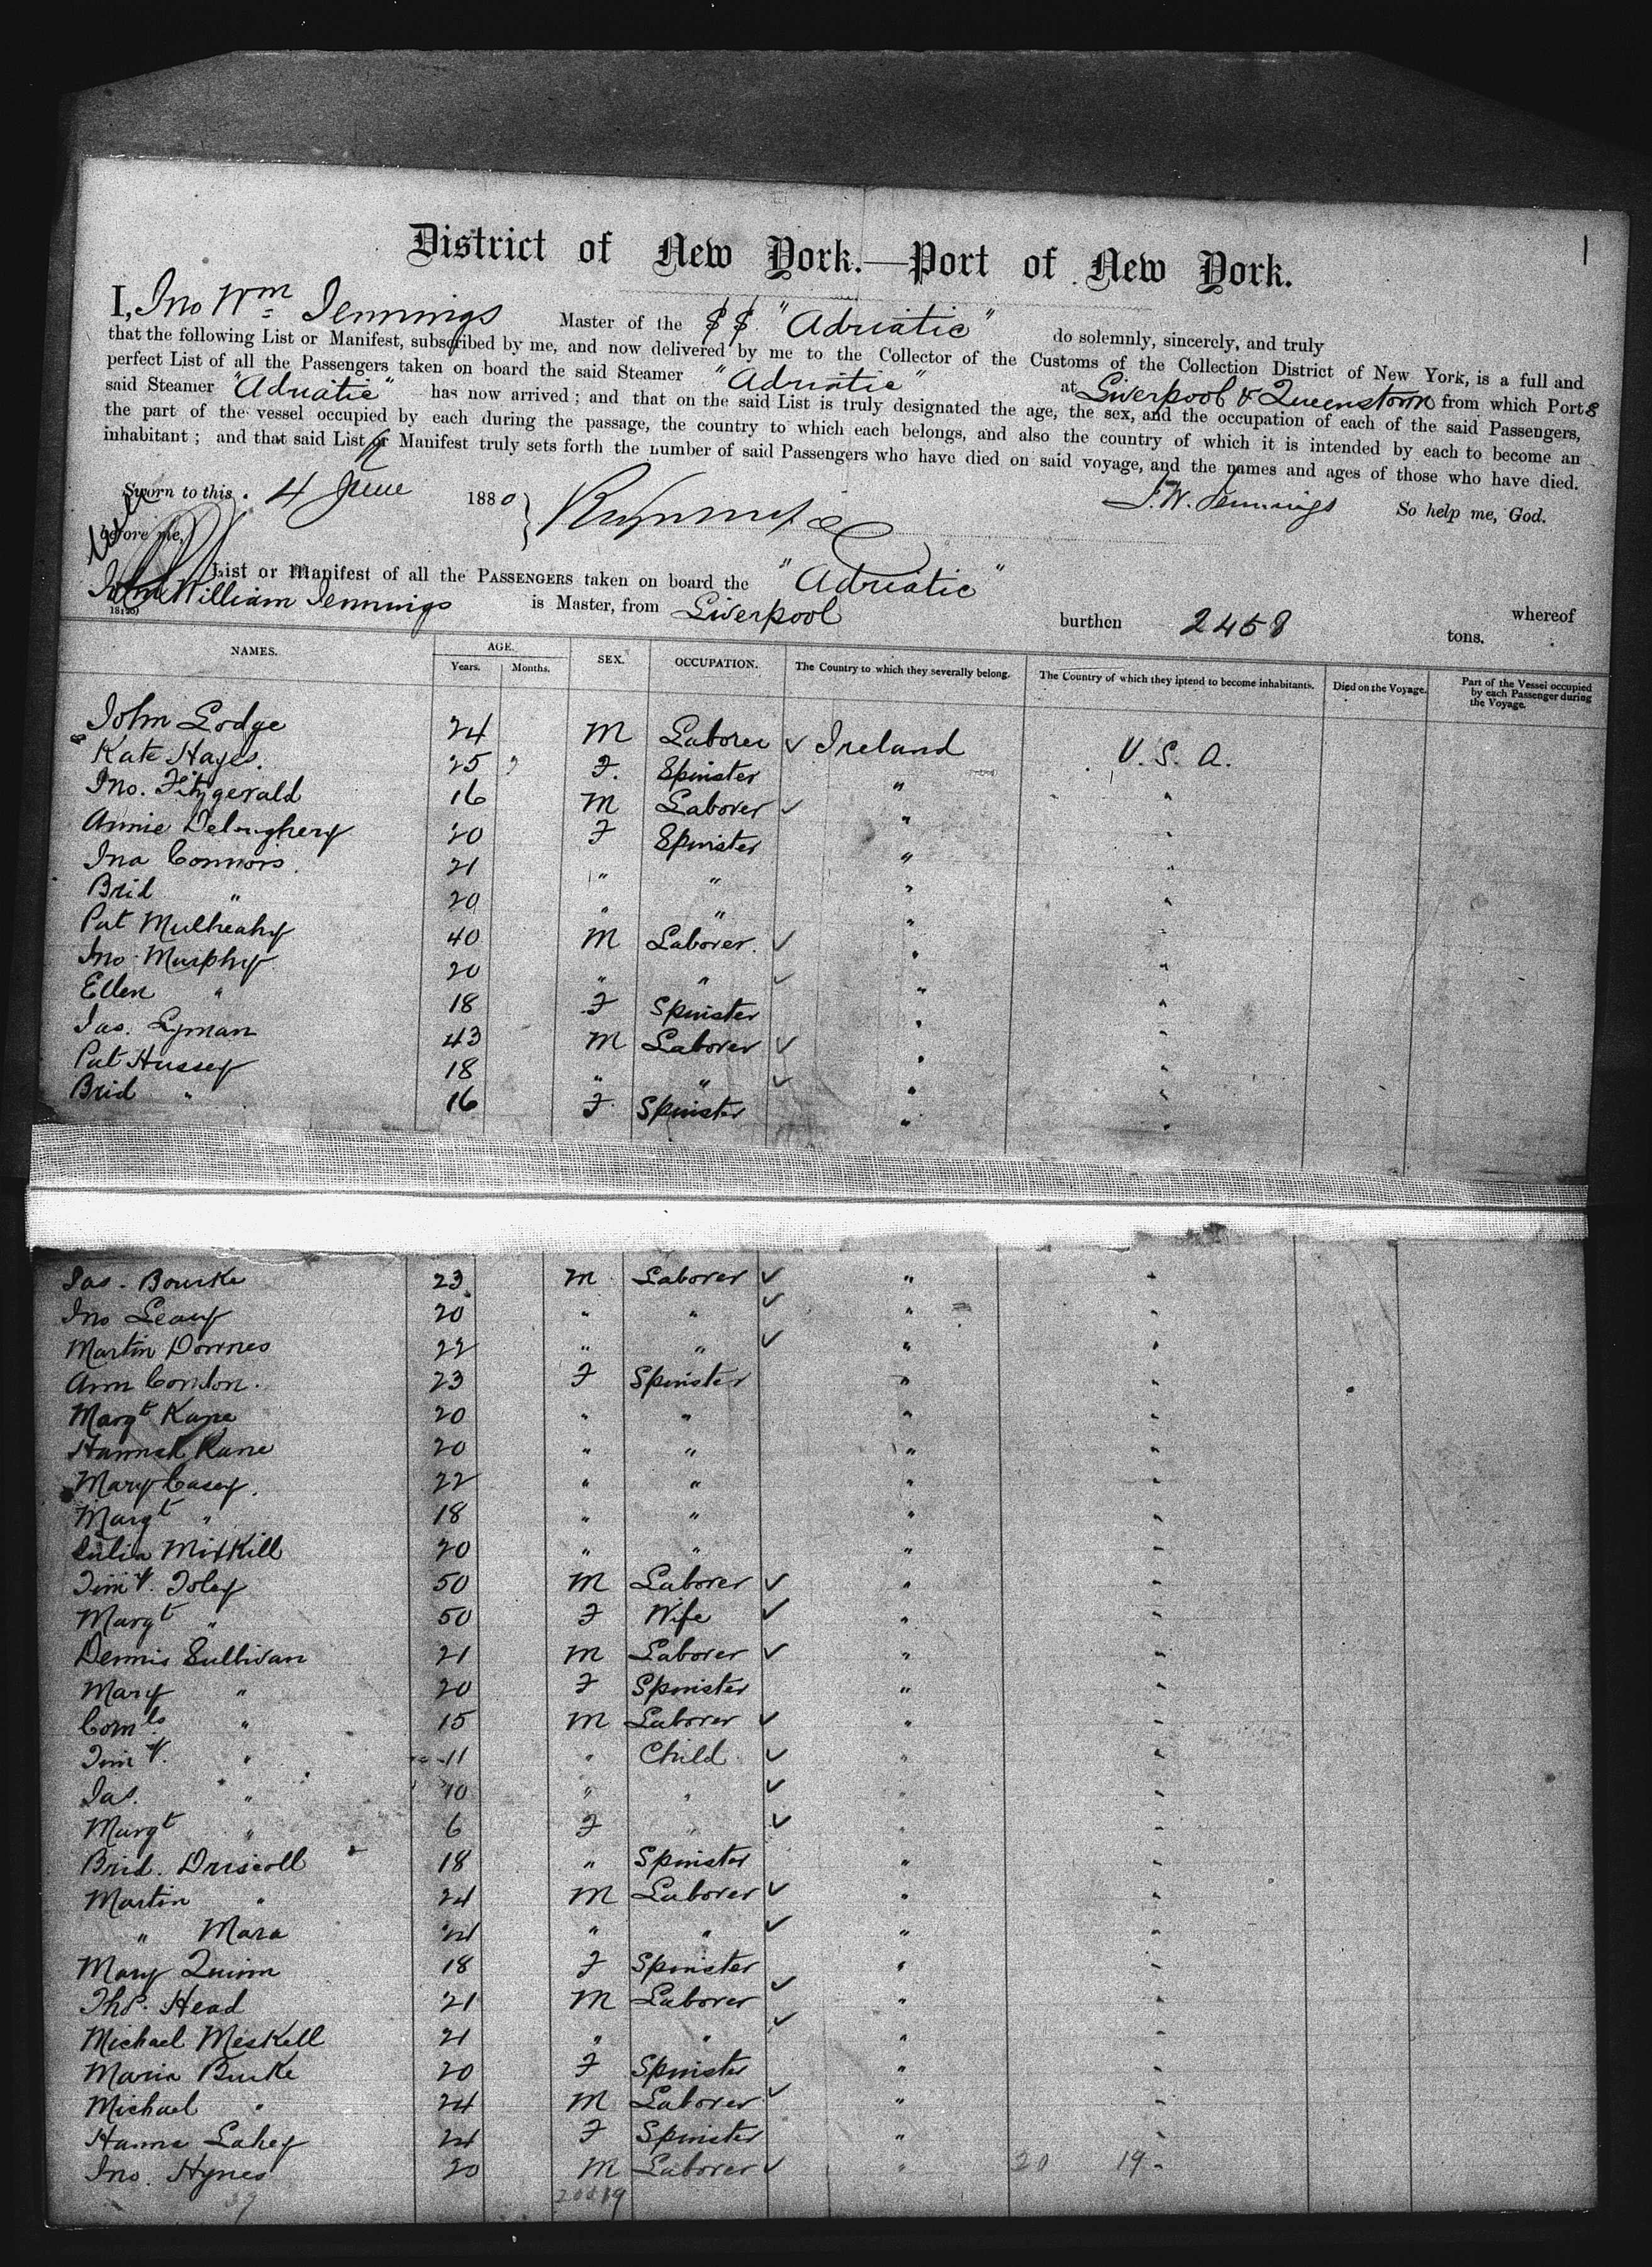 1
District of New York.—Port of New York.
I, Jno Wm Jennings Master of the SS. "Adriatic" do solemnly, sincerely, and truly
that the following List or Manifest, subscribed by me, and now delivered by me to the Collector of the Customs of the Collection District of New York, is a full and
perfect List of all the Passengers taken on board the said Steamer "Adriatic" at Liverpool & Queenstown from which Ports
said Steamer "Adriatic" has now arrived; and that on the said List is truly designated the age, the sex, and the occupation of each of the said Passengers,
the part of the vessel occupied by each during the passage, the country to which each belongs, and also the country of which it is intended by each to become an
inhabitant; and that said List or Manifest truly sets forth the number of said Passengers who have died on said voyage, and the names and ages of those who have died.
Sworn to this 4 June 1880 J. W. Jennings So help me, God.
before me,
List or Manifest of all the PASSENGERS taken on board the "Adriatic" whereof
John William Jennings is Master, from Liverpool burthen 2458 tons.
NAMES. AGE. Years. Months. SEX. OCCUPATION. The Country to which they severally belong. The Country of which they intend to become inhabitants. Died on the Voyage. Part of the Vessel occupied by each Passenger during the Voyage.
John Lodge 24 M Laborer ✓ Ireland U. S. A.
Kate Hayes. 25 F. Spinster " "
Jno. Fitzgerald 16 M Laborer ✓ " "
Annie Deloughery 20 F Spinster " "
Jna Connors. 21 " " " "
Brid " 20 " " " "
Pat Mulheahy 40 M Laborer. ✓ " "
Jno. Murphy 20 " " ✓ " "
Ellen " 18 F Spinster " "
Jas. Lyman 43 M Laborer ✓ " "
Pat Hussey 18 " " ✓ " "
Brid " 16 F. Spinster " "
Jas. Bourke 23 M Laborer ✓ " "
Jno Leary 20 " " ✓ " "
Martin Downes 22 " " ✓ " "
Ann Condon. 23 F Spinster " "
Margt Kane 20 " " " "
Hannah Kane 20 " " " "
Mary Casey. 22 " " " "
Margt " 18 " " " "
Julia Miskill 20 " " " "
Timy. Foley 50 M Laborer ✓ " "
Margt " 50 F Wife ✓ " "
Dennis Sullivan 21 M Laborer ✓ " "
Mary " 20 F Spinster " "
Corn.ls " 15 M Laborer ✓ " "
Timy. " 11 " Child ✓ " "
Jas. " 10 " " ✓ " "
Margt " 6 F " ✓ " "
Brid. Driscoll 18 " Spinster " "
Martin " 24 M Laborer ✓ " "
" Mara 24 " " ✓ " "
Mary Quinn 18 F Spinster " "
Ths. Head 21 M Laborer ✓ " "
Michael Meskell 21 " " ✓ " "
Maria Burke 20 F Spinster " "
Michael " 24 M Laborer ✓ " "
Hanna Lahey 24 F Spinster " "
Jno. Hynes 20 M Laborer ✓ " 20 19 "
39